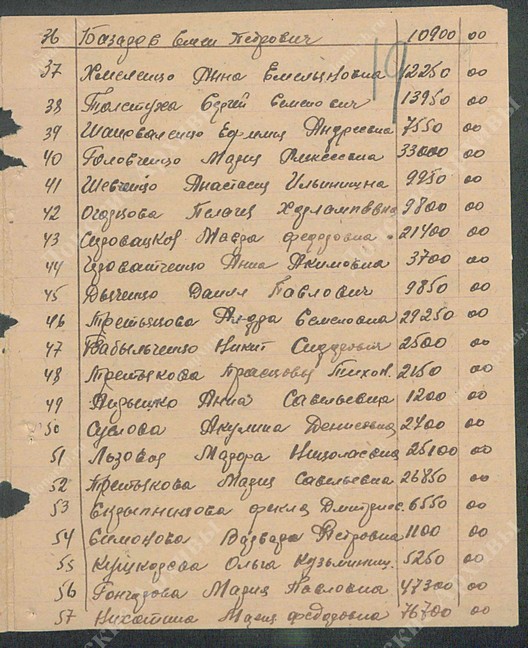 36 Базадов Емел Петрович 10900 00
37 Хмеленцо Анна Емельяновна 12250 00
19
38 Толстуха Сергей Семенович 13950 00
39 Шаповаленцо Андреевна 7550 00
40 Головченцо Мария Алексеевна 33000 00
41 Шевченцо Анастасия Ильинищна 9250 00
42 Огорцова Пелагия Харлампевна 9800 00
43 Мавра Федоровна 21400 00
44 Анна Акимовна 3700 00
45 Дьяченцо Данил Павлович 9850 00
46 Третьяцова Семеновна 29250 00
47 Бабыльченцо Никит 2500 00
48 Третьякова Прасцовья Тихон. 2150
49 Анна Савельевна 1200 00
50 Суслова Акулина Денистовна 2400 00
51 Николаевна 25100 00
52 Третьякова Мария Савельевна 26850 00
53 Фекла Дмитриев. 6550 00
54 Симонова Варвара Петровна 1100 00
55 Ольга Кузьминиц. 5250 00
56 Гончарова Мария Павловна 47300 00
57 Никитина Мария Федоровна 76700 00